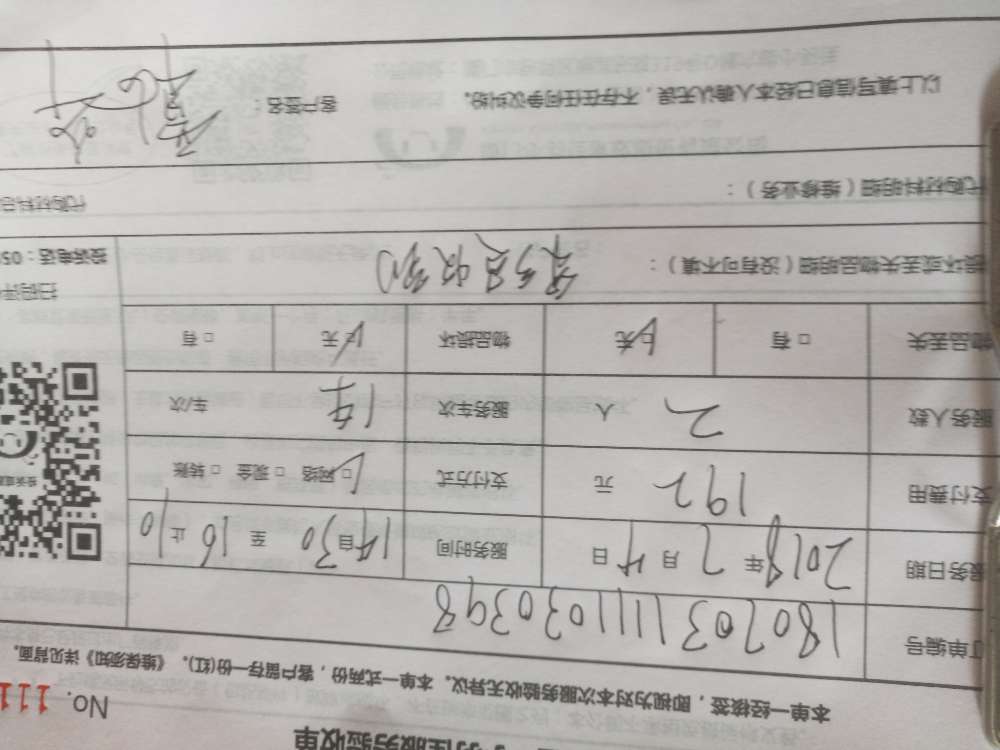 服务验收单
No. 111
本单一经核签，即视为对本次服务验收无异议。本单一式两份，客户留存一份(红)。《维保须知》详见背面。
订单编号 1807031111030398
服务日期 2018年7月4日 服务时间 14自30至16止10
支付费用 192元 支付方式 □网络 □现金 □转账
服务人数 2人 服务车次 1车 车/次
物品丢失 □有 □无 物品损坏 □无 □有
损坏或丢失物品明细（没有可不填）：
扫码评
投诉电话：05
代购材料明细（维修业务）：
代购材料合
以上填写信息已经本人确认无误，不存在任何争议纠纷。 客户签名：